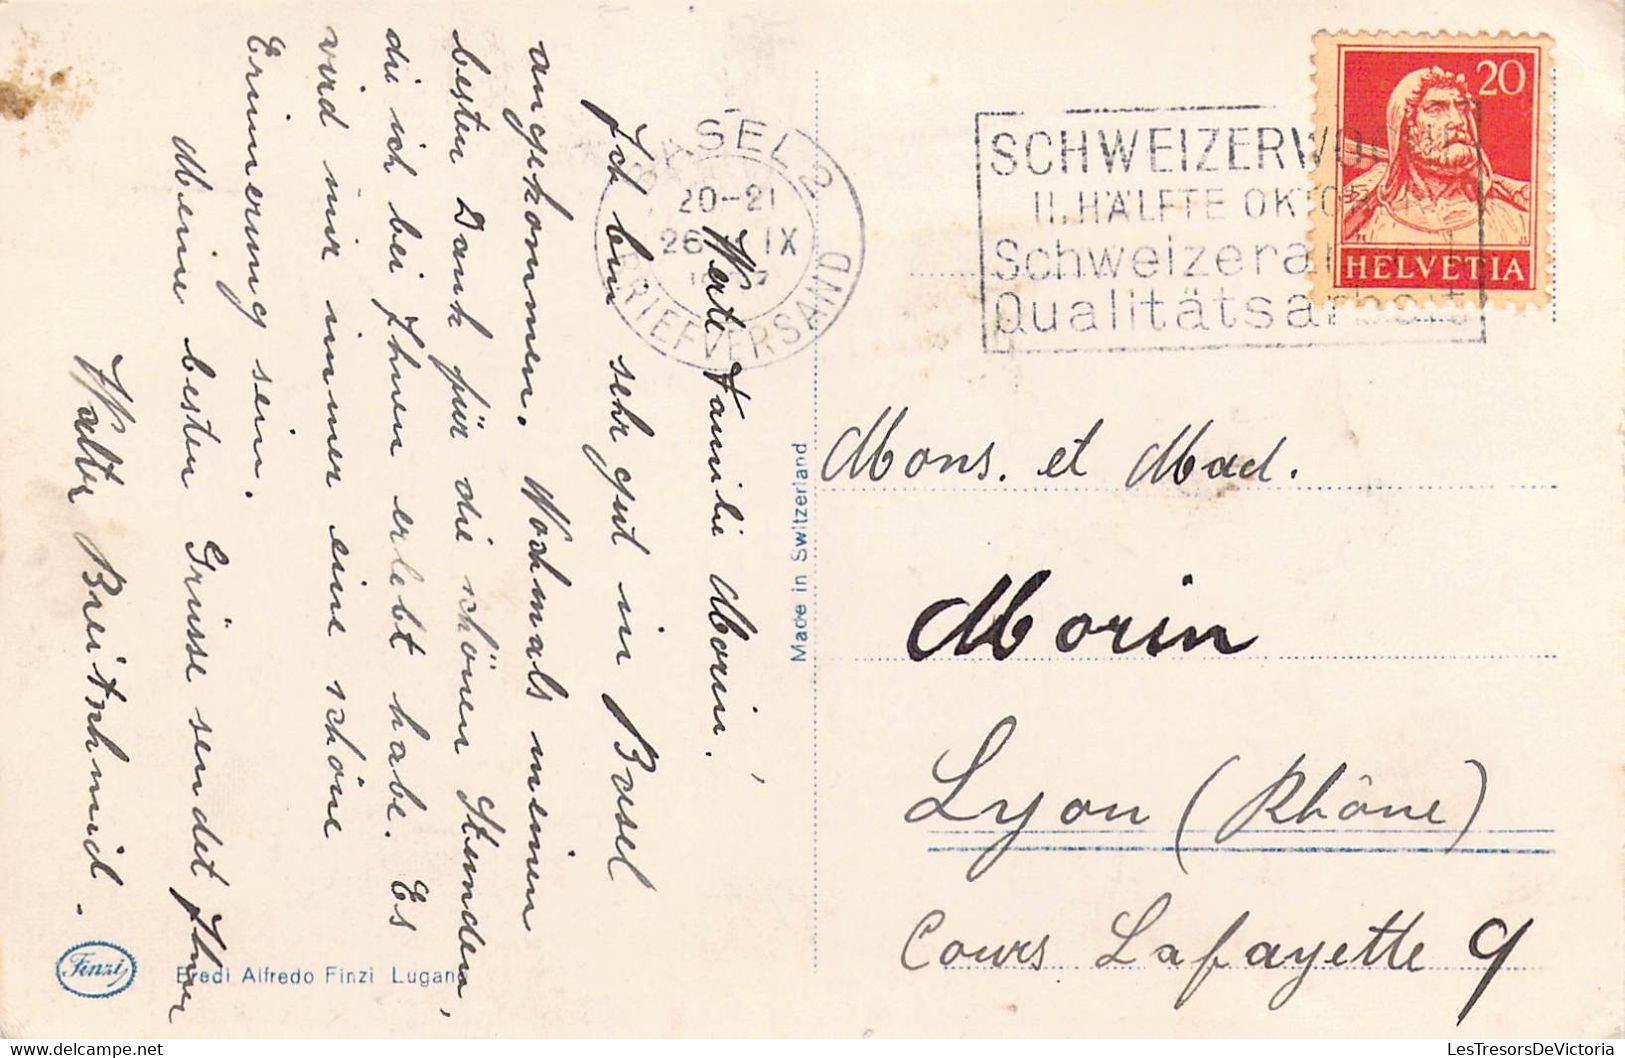 Werte Familie Morin.
Ich bin sehr gut in Basel
angekommen. Nochmals meinen
besten Dank für die schönen Stunden,
die ich bei Ihnen erlebt habe. Es
wird mir immer eine schöne
Erinnerung sein.
Meine besten Grüsse sendet Ihnen
Walter Breitschmid.
Finzi
Eredi Alfredo Finzi Lugano
Made in Switzerland
BASEL 2
20-21
26 IX
BRIEFVERSAND
SCHWEIZERWOCHE
II. HÄLFTE OKTOBER
Schweizerart
Qualitätsarbeit
20
HELVETIA
Mons. et Mad.
Morin
Lyon (Rhône)
Cours Lafayette 9
LesTresorsDeVictoria